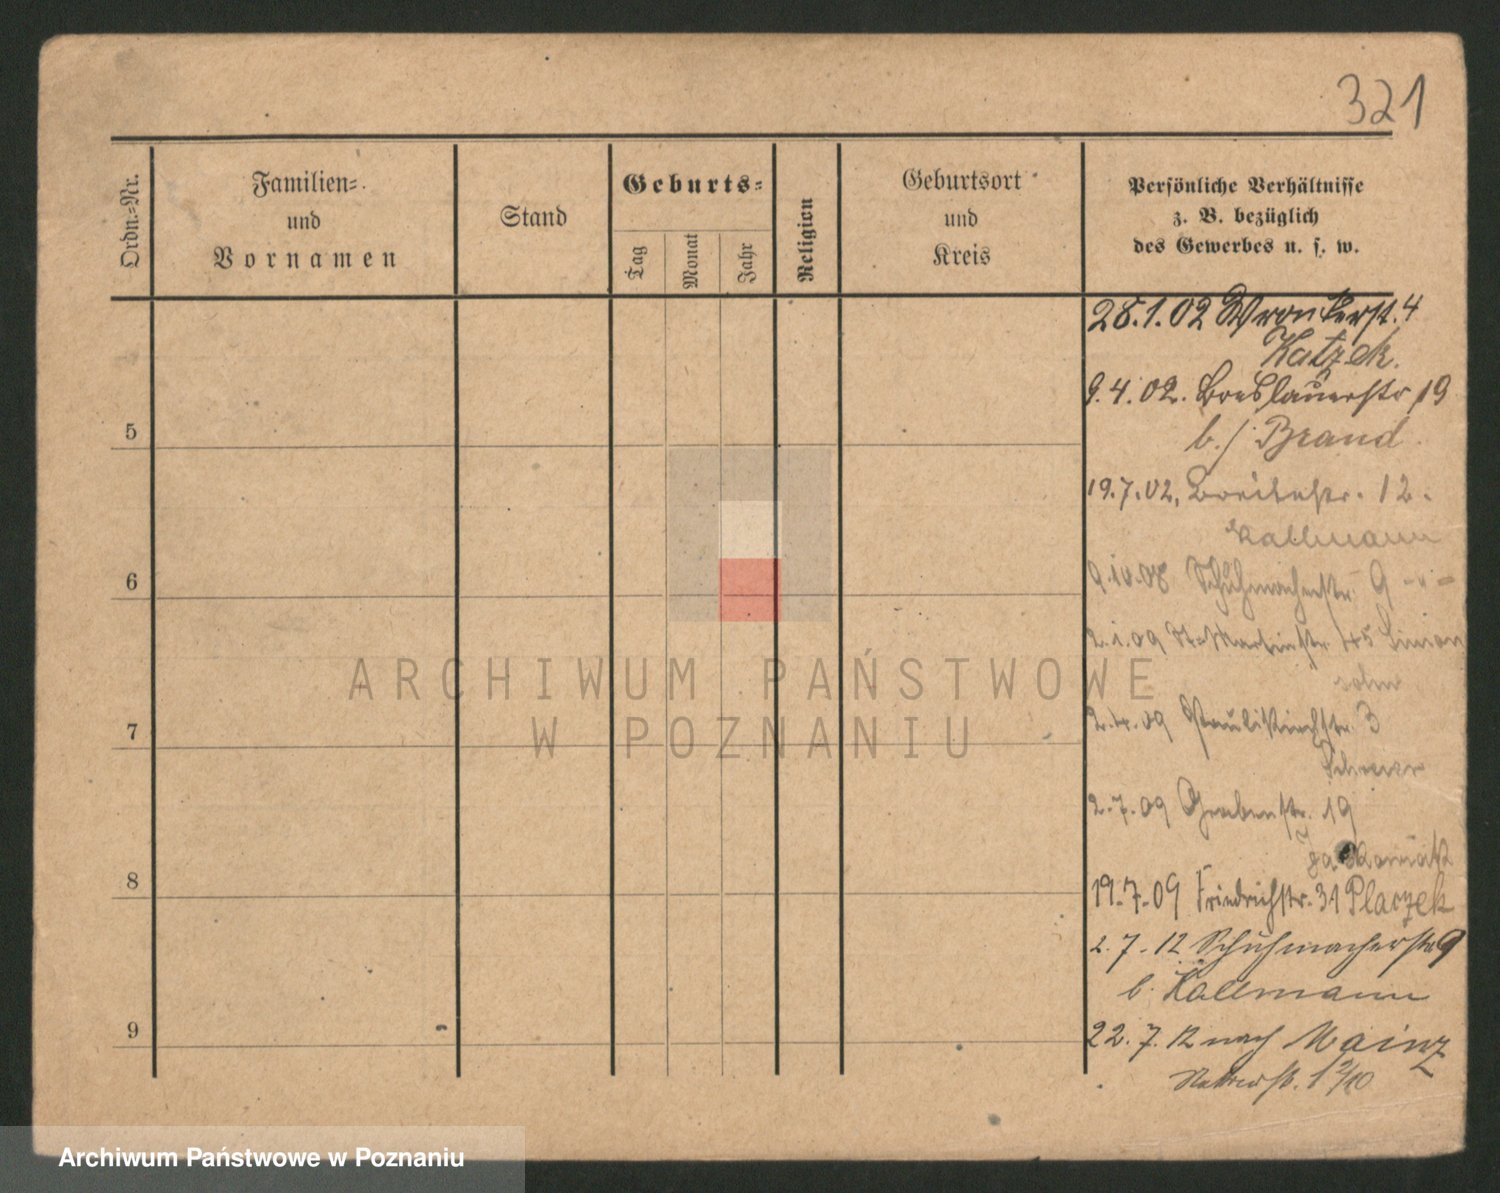 321
Ordn.=Nr.
Familien=
und
Vornamen
Stand
Geburts=
Tag
Monat
Jahr
Religion
Geburtsort
und
Kreis
Persönliche Verhältnisse
z. B. bezüglich
des Gewerbes u. s. w.
28.1.02 Wronkerst. 4
Katzek.
9.4.02. Breslauerstr 19
b./ Brand
5
19.7.02. Breitestr. 12.
Kallmann
9.10.08 Schuhmacherstr. 9
6
2.1.09 St. Martinstr. 45
ARCHIWUM PAŃSTWOWE
W POZNANIU
2.4.09 Paulikirchstr. 3
7
2.7.09 Grabenstr. 19
8
19.7.09 Friedrichstr. 31 Placzek
2.7.12 Schuhmacherstr 9
b. Kallmann
9
22.7.12 nach Mainz
Archiwum Państwowe w Poznaniu